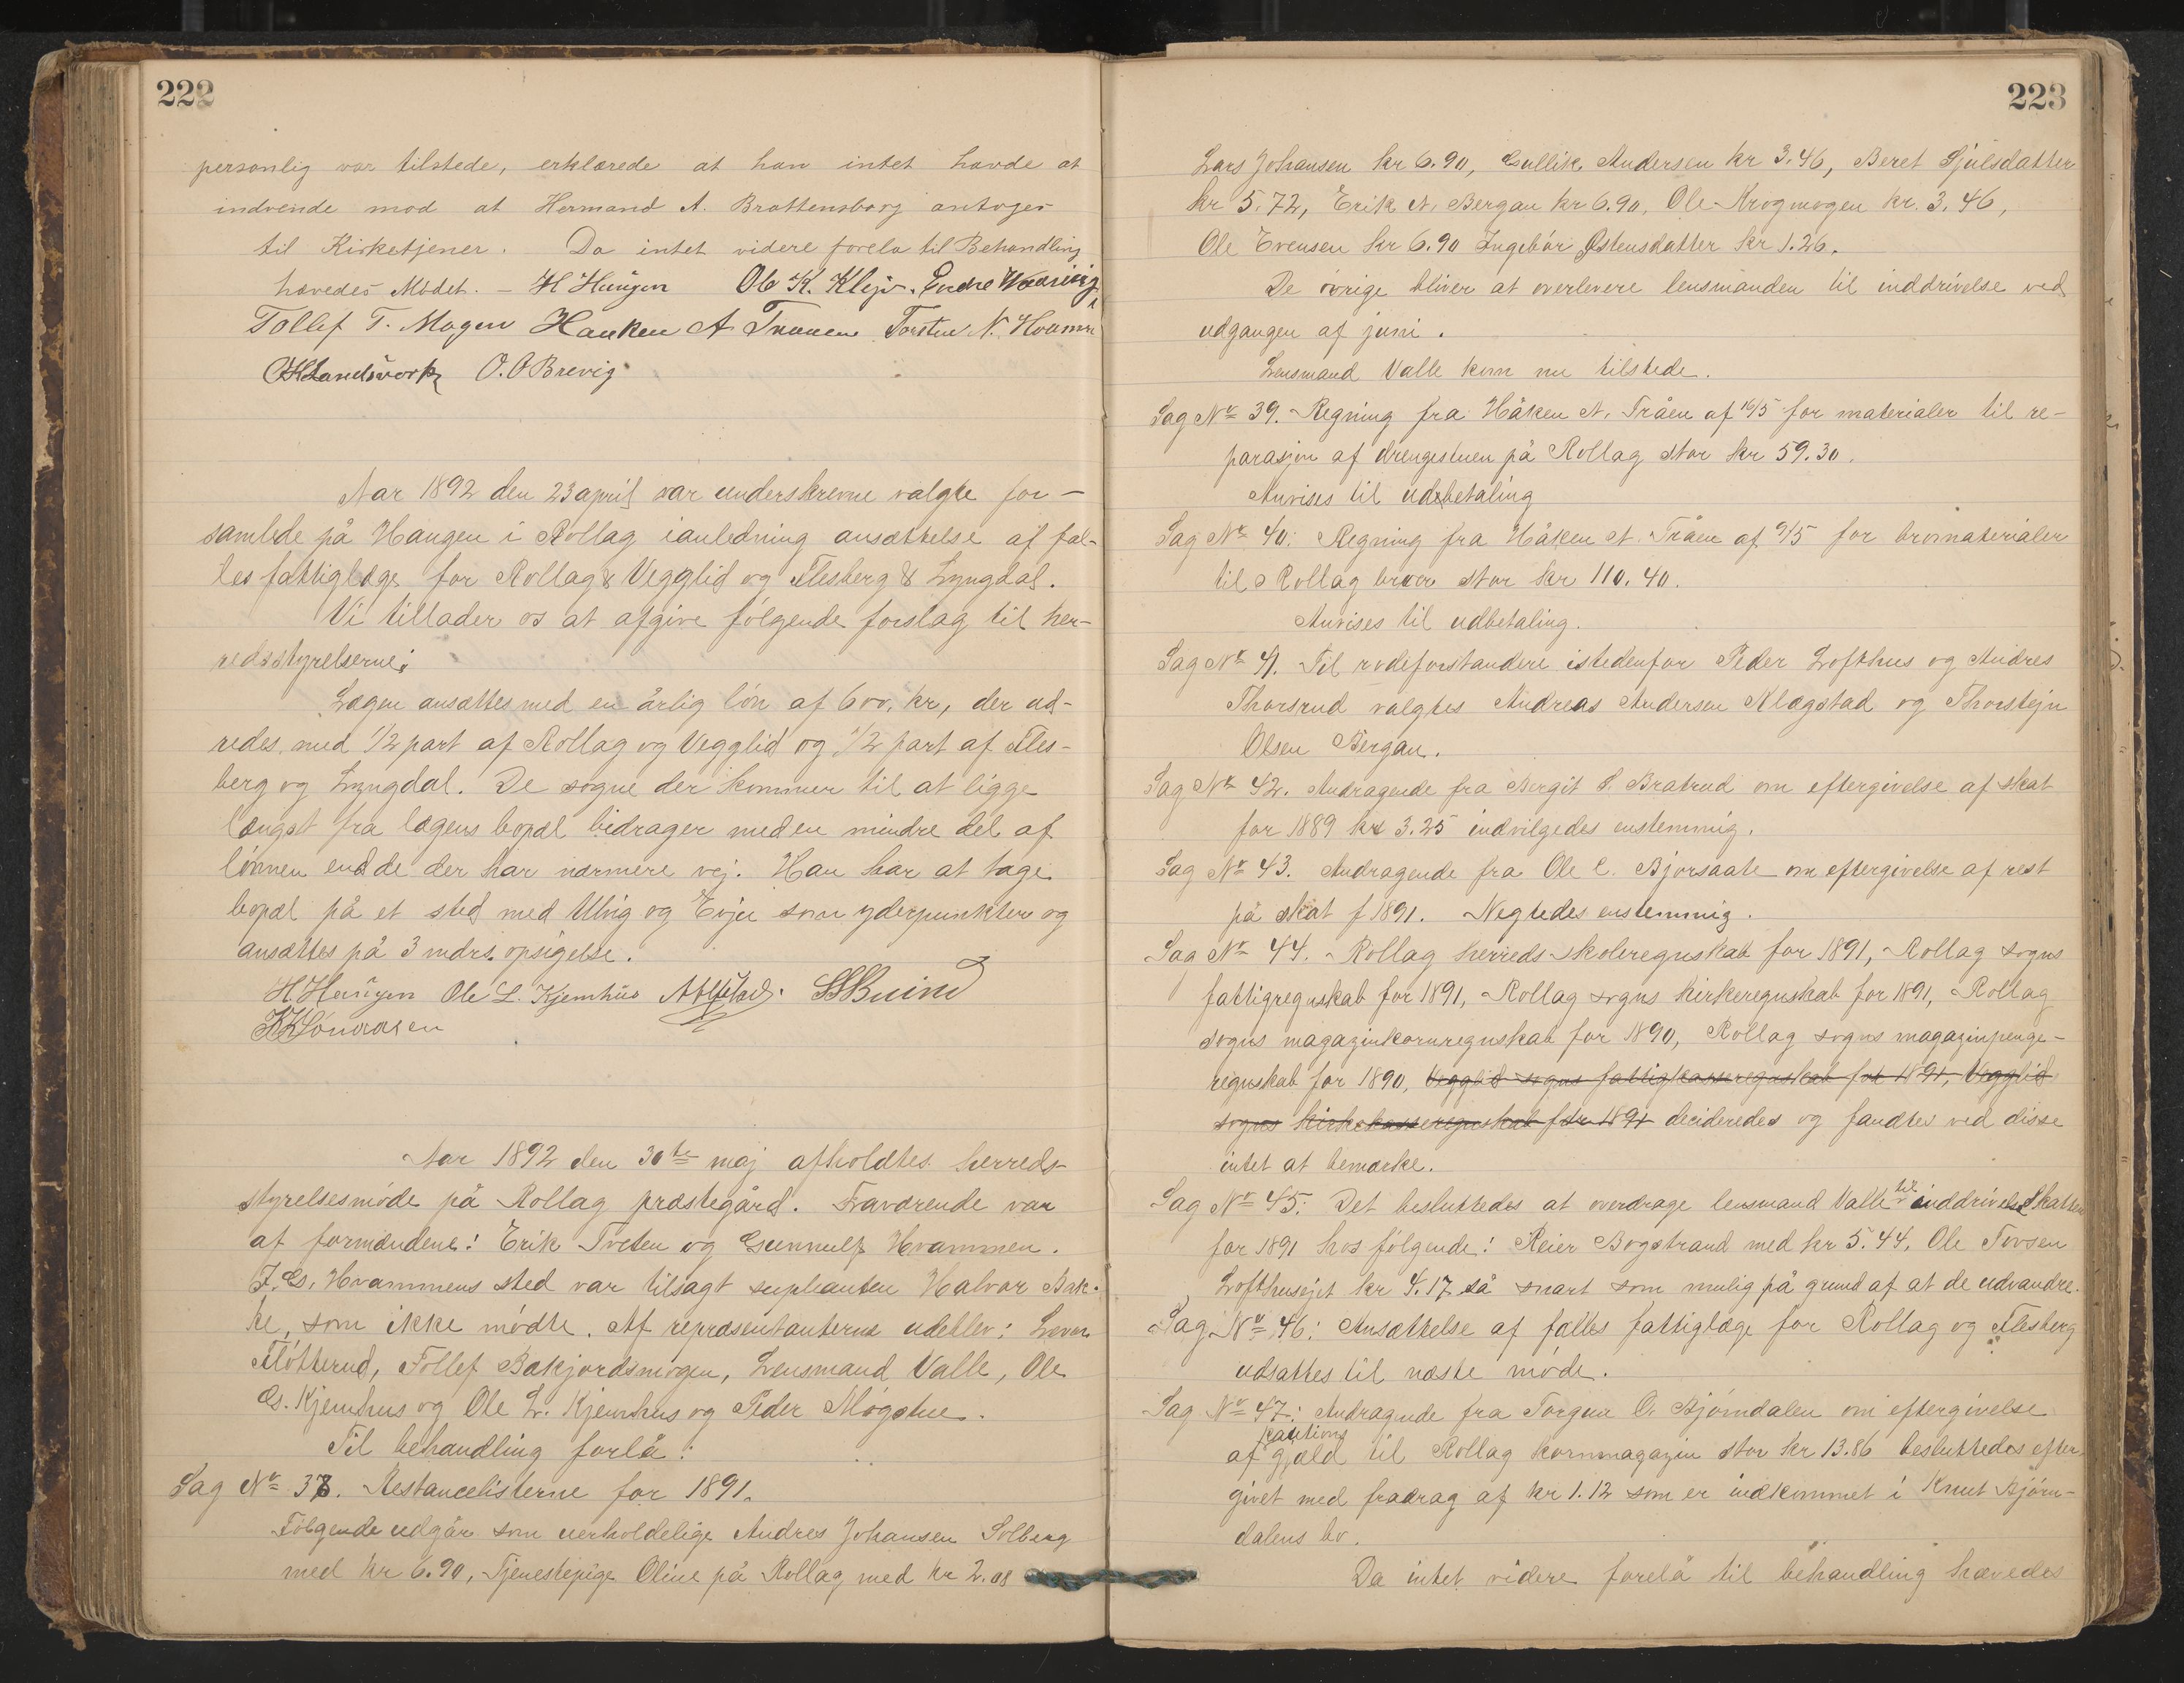 222
personlig var tilstede, erklærede at han intet havde at
indvende mod at Hermand A. Brattensborg antoges
til Kirketjener. Da intet videre forelå til Behandling
hævedes Mødet. - H Haugen Ole K. Klejv. Endre
Tollef T. Mogen Haaken A Traaen Torsten N. Hvamm
Landsverk O. O Brevig
Aar 1892 den 23 april var underskrevne valgte for-
samlede på Haugen i Rollag ianledning ansættelse af fæl-
les fattiglæge for Rollag & Vegglid og Flesberg & Lyngdal.
Vi tillader os at afgive følgende forslag til her-
redsstyrelserne:
Lægen ansættes med en årlig løn af 600, kr, der ud-
redes med 1/2 part af Rollag og Vegglid og 1/2 part af Fles-
berg og Lyngdal. De sogne der kommer til at ligge
længst fra lægens bopæl bidrager med en mindre del af
lønnen end de der har nærmere vej. Han har at tage
bopæl på et sted med Ulvig og Evju som yderpunkter og
ansættes på 3 mdrs. opsigelse.
H Haugen Ole L. Kjemhus
Aar 1892 den 30te maj afholdtes herreds-
styrelsesmøde på Rollag præstegård. Fraværende var
af formændene: Erik Tveten og Gunnulf Hvammen.
I. G. Hvammens sted var tilsagt supleanten Halvor Bak-
ke, som ikke mødte. Af repræsentanterne udeblev: Lever
Fløtterud, Tollef Bakjordsmogen, Lensmand Valle, Ole
G. Kjemhus og Ole L. Kjemhus og Peder Møgstue.
Til behandling forlå:
Sag No 38. Restancelisterne for 1891.
Følgende udgår som uerholdelige Andres Johansen Solberg
med kr 6.90, Tjenestepige Oline på Rollag med kr 2.08
223
Lars Johansen kr 6.90, Gullik Andersen kr 3.46, Beret Gjulsdatter
kr 5.72, Erik N. Bergan kr 6.90, Ole Krogmogen kr. 3.46,
Ole Evensen kr 6.90 Ingebør Østensdatter kr 1.26.
De øvrige bliver at overlevere lensmanden til inddrivelse ved
udgangen af juni.
Lensmand Valle kom nu tilstede.
Sag No 39. Regning fra Håken A. Tråen af 16/5 for materialer til re-
parasjon af drengestuen på Rollag stor kr 59.30.
Anvises til udbetaling
Sag No 40: Regning fra Håken A. Tråen af 9/5 for bromaterialer
til Rollag broer stor kr 110.40.
Anvises til udbetaling.
Sag No 41. Til rodeforstandere istedenfor Peder Lofthus og Andres
Thorsrud valgtes Andreas Andersen Klægstad og Thorstejn
Olsen Bergan.
Sag No 42. Andragende fra Bergit S. Bratrud om eftergivelse af skat
for 1889 kr 3.25 indvilgedes enstemmig.
Sag No 43. Andragende fra Ole C. Bjørsaate om eftergivelse af rest
på skat f 1891. Negtedes enstemmig.
Sag No 44. Rollag herreds skoleregnskab for 1891, Rollag sogns
fattigregnskab for 1891, Rollag sogns kirkeregnskab for 1891, Rollag
sogns magazinkornregnskab for 1890, Rollag sogns magazinpenge-
regnskab for 1890, Vegglid sogns fattigkasseregnskab for 1891, Vegglid
sogns kirkekasseregnskab for 1891 decideredes og fandtes ved disse
intet at bemærke.
Sag No 45: Det besluttedes at overdrage lensmand Valle til inddrivelse Skatten
for 1891 hos følgende: Reier Bogstrand med kr 5.44, Ole Tovsen
Lofthusejet kr 4.17 så snart som mulig på grund af at de udvandre.
Sag No 46: Ansættelse af fælles fattiglæge for Rollag og Flesberg
udsattes til næste møde.
Sag No 47: Andragende fra Torgun O. Bjørndalen om eftergivelse
kautions
af gjæld til Rollag kornmagazin stor kr 13.86 besluttedes efter-
givet med fradrag af kr 1.12 som er indkommet i Knut Bjørn-
dalens bo.
Da intet videre forelå til behandling hævedes